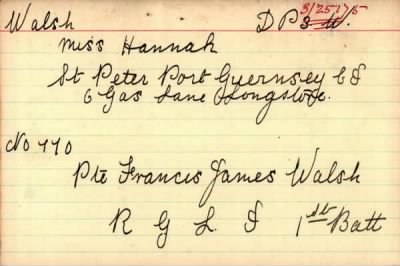 Walsh D P S W. 3/25175
Miss Hannah
St Peter Port Guernsey C I
6 Gas Lane Longstore.
No 770
Pte Francis James Walsh
R G L I 1st Batt